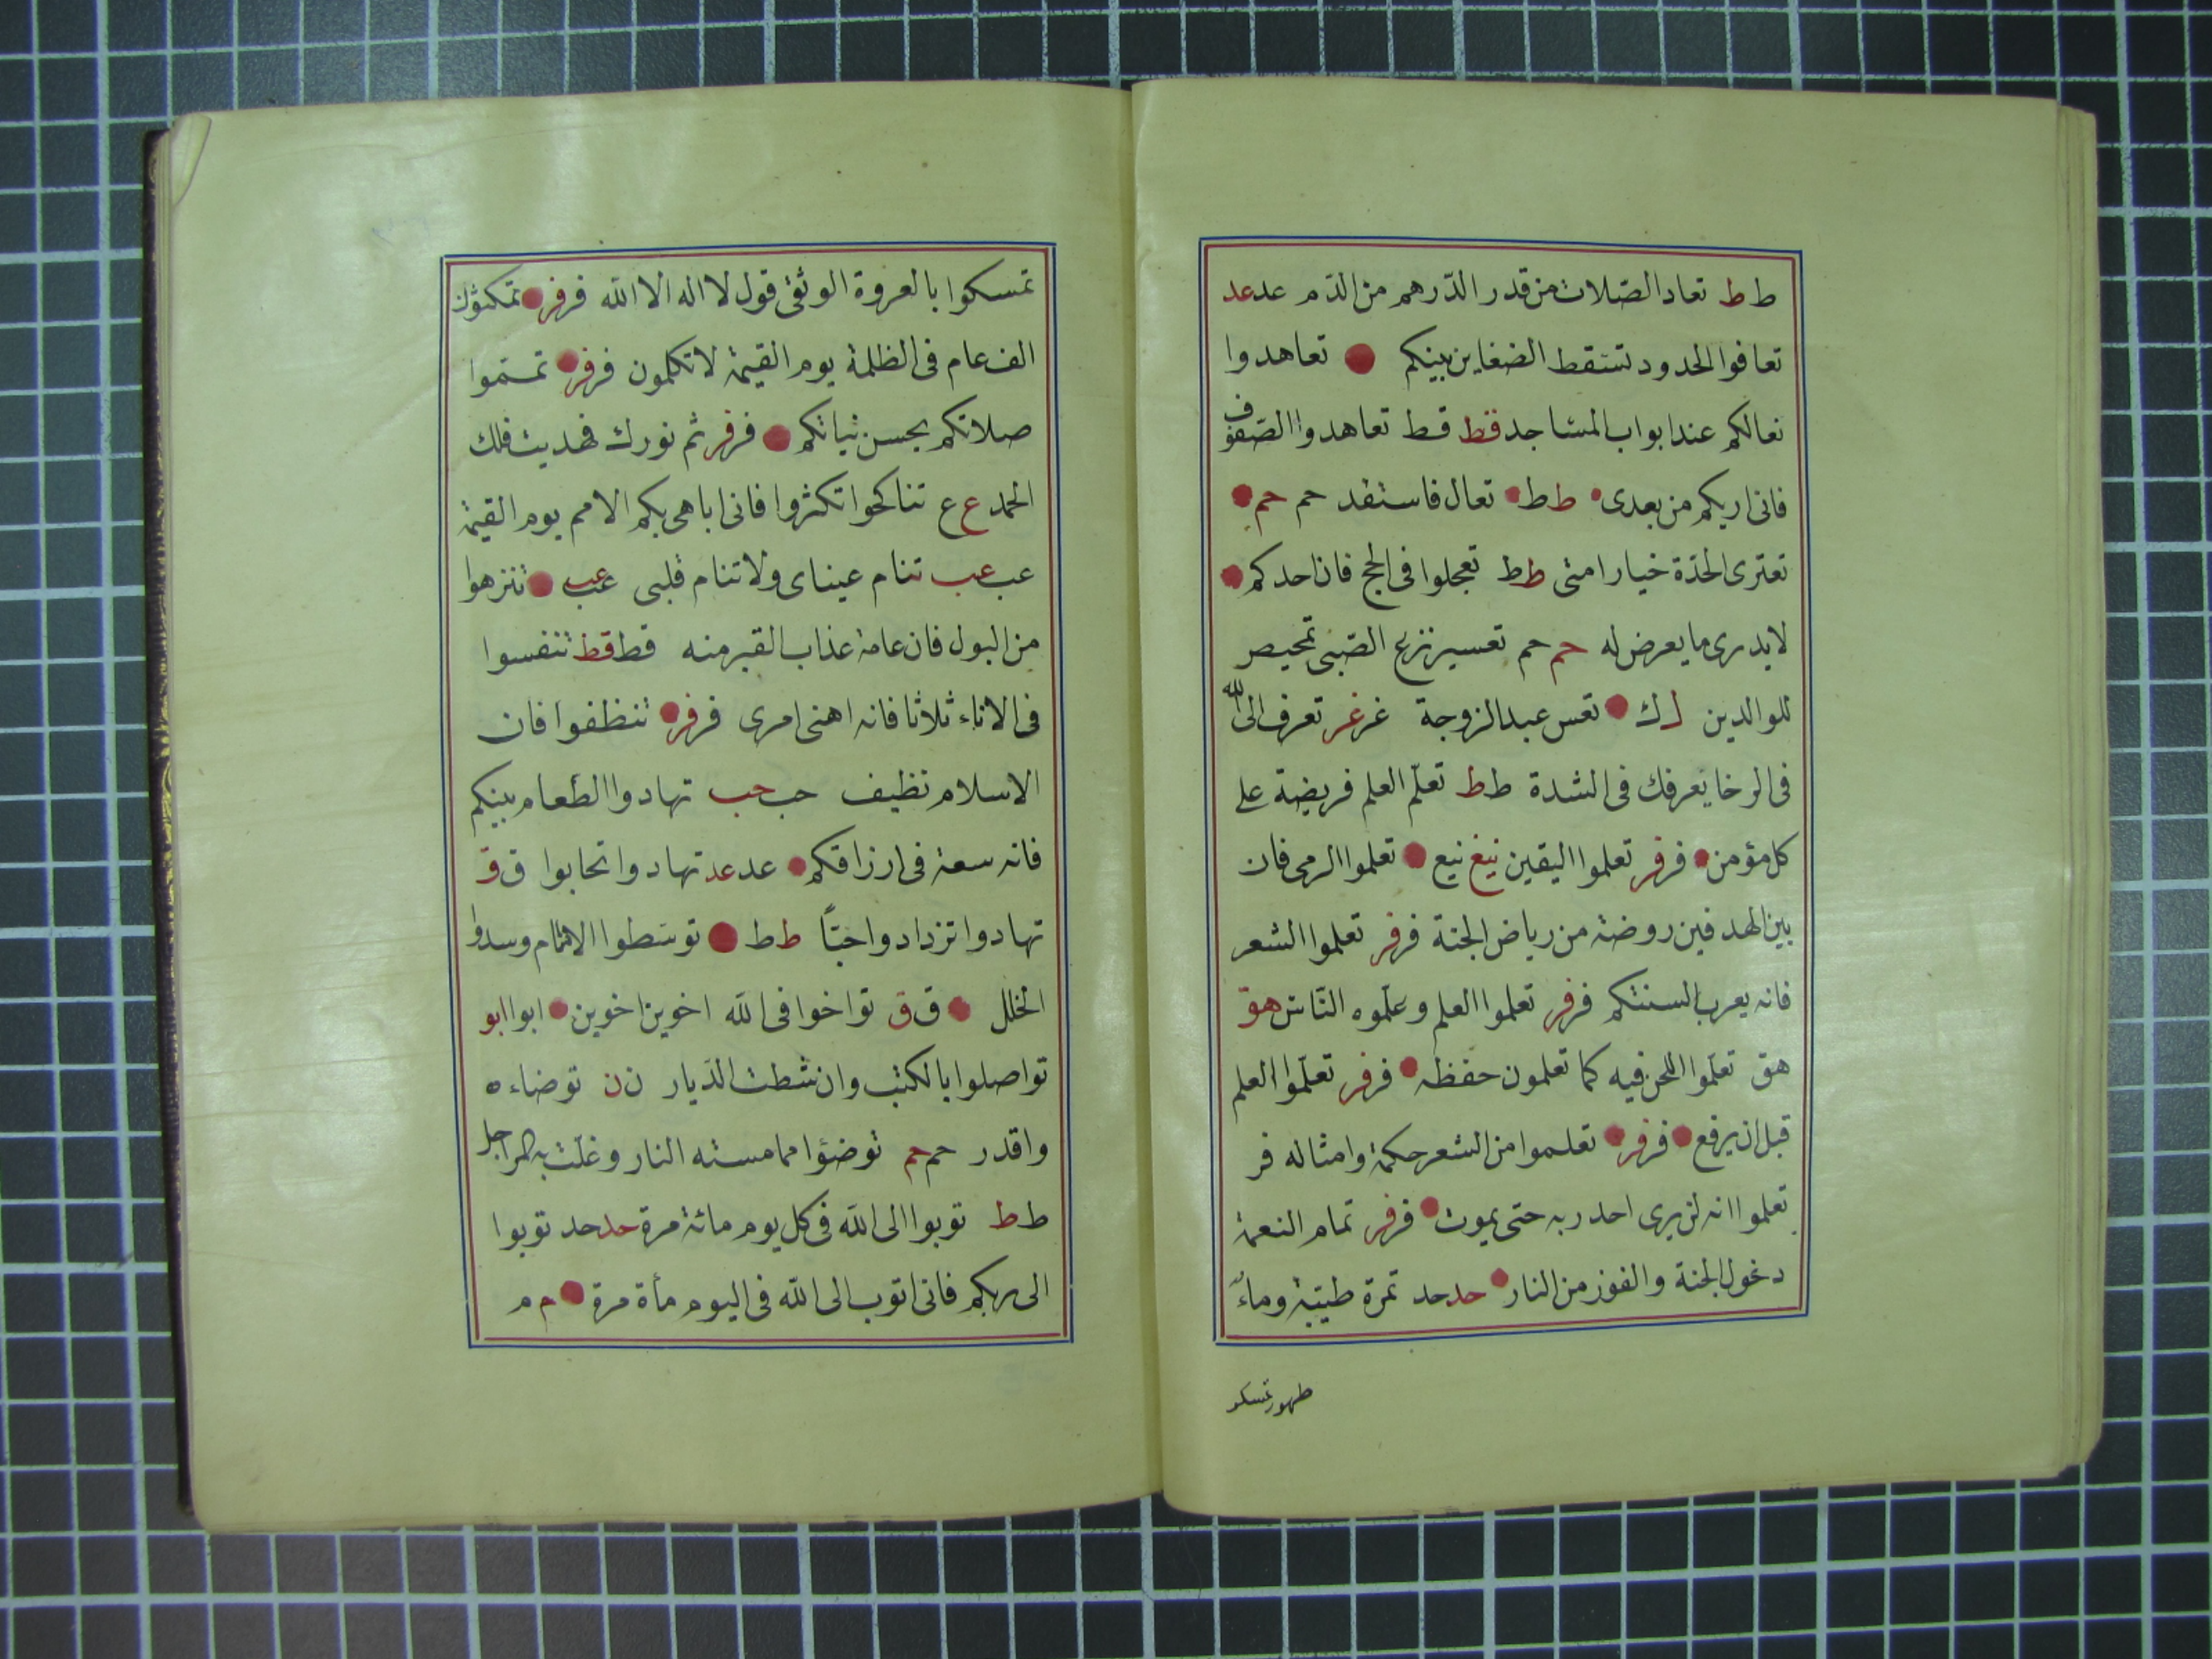 ط ط تعاد الصلاة من قدر الدرهم من الدم عد عد
تعافوا الحدود تسقط الضغاين بينكم تعاهدوا
نعالكم عند ابواب المساجد قط قط تعاهدوا الصفوف
فانى اريكم من بعدى ط ط تعال فاستقد حم حم
تعترى الحدة خيار امتى ط ط تعجلوا فى الحج فان احدكم
لايدرى ما يعرض له حم حم تعسير نزع الصبى تمحيص
للوالدين ك تعس عبد الزوجة غر غر تعرف الى الله
فى الرخا يعرفك فى الشدة ط ط تعلم العلم فريضة على
كل مؤمن فر فر تعلموا اليقين نيع نيع تعلموا الرمى فان
بين الهدفين روضة من رياض الجنة فر فر تعلموا الشعر
فانه يعرب السنتكم فر فر تعلموا العلم وعلموه الناس هق
هق تعلموا اللحن فيه كما تعلمون حفظه فر فر تعلموا العلم
قبل ان يرفع فر فر تعلموا من الشعر حكمة وامثاله فر
تعلموا انه لن يرى احد ربه حتى يموت فر فر تمام النعمة
دخول الجنة والفوز من النار حد حد تمرة طيبة وماء
طهور تمسكو
تمسكوا بالعروة الوثقى قول لا اله الا الله فر فر تمكثون
الف عام فى الظلمة يوم القيمة لا تكلمون فر فر تمتموا
صلاتكم بحسن نياتكم فر فر ثم نورك فهديت فلك
الحمد ع ع تناكحوا تكثروا فانى اباهى بكم الامم يوم القيمة
عب عب تنام عيناى ولا تنام قلبى عب عب تنزهوا
من البول فان عامة عذاب القبر منه قط قط تنفسوا
فى الاناء ثلاثا فانه اهنى امرى فر فر تنظفوا فان
الاسلام نظيف حب حب تهادوا الطعام بينكم
فانه سعة فى ارزاقكم عد عد تهادوا تحابوا ق ق
تهادوا تزدادوا حبًا ط ط توسطوا الامام وسدوا
الخلل ق ق تواخوا فى الله اخوين اخوين ابو ابو
تواصلوا بالكتب وان شطت الديار ن ن توضاءه
واقدر حم حم توضؤا مما مسته النار وغلت به المراجل
ط ط توبوا الى الله فى كل يوم مائة مرة حد حد توبوا
الى ربكم فانى اتوب الى الله فى اليوم مأة مرة م م